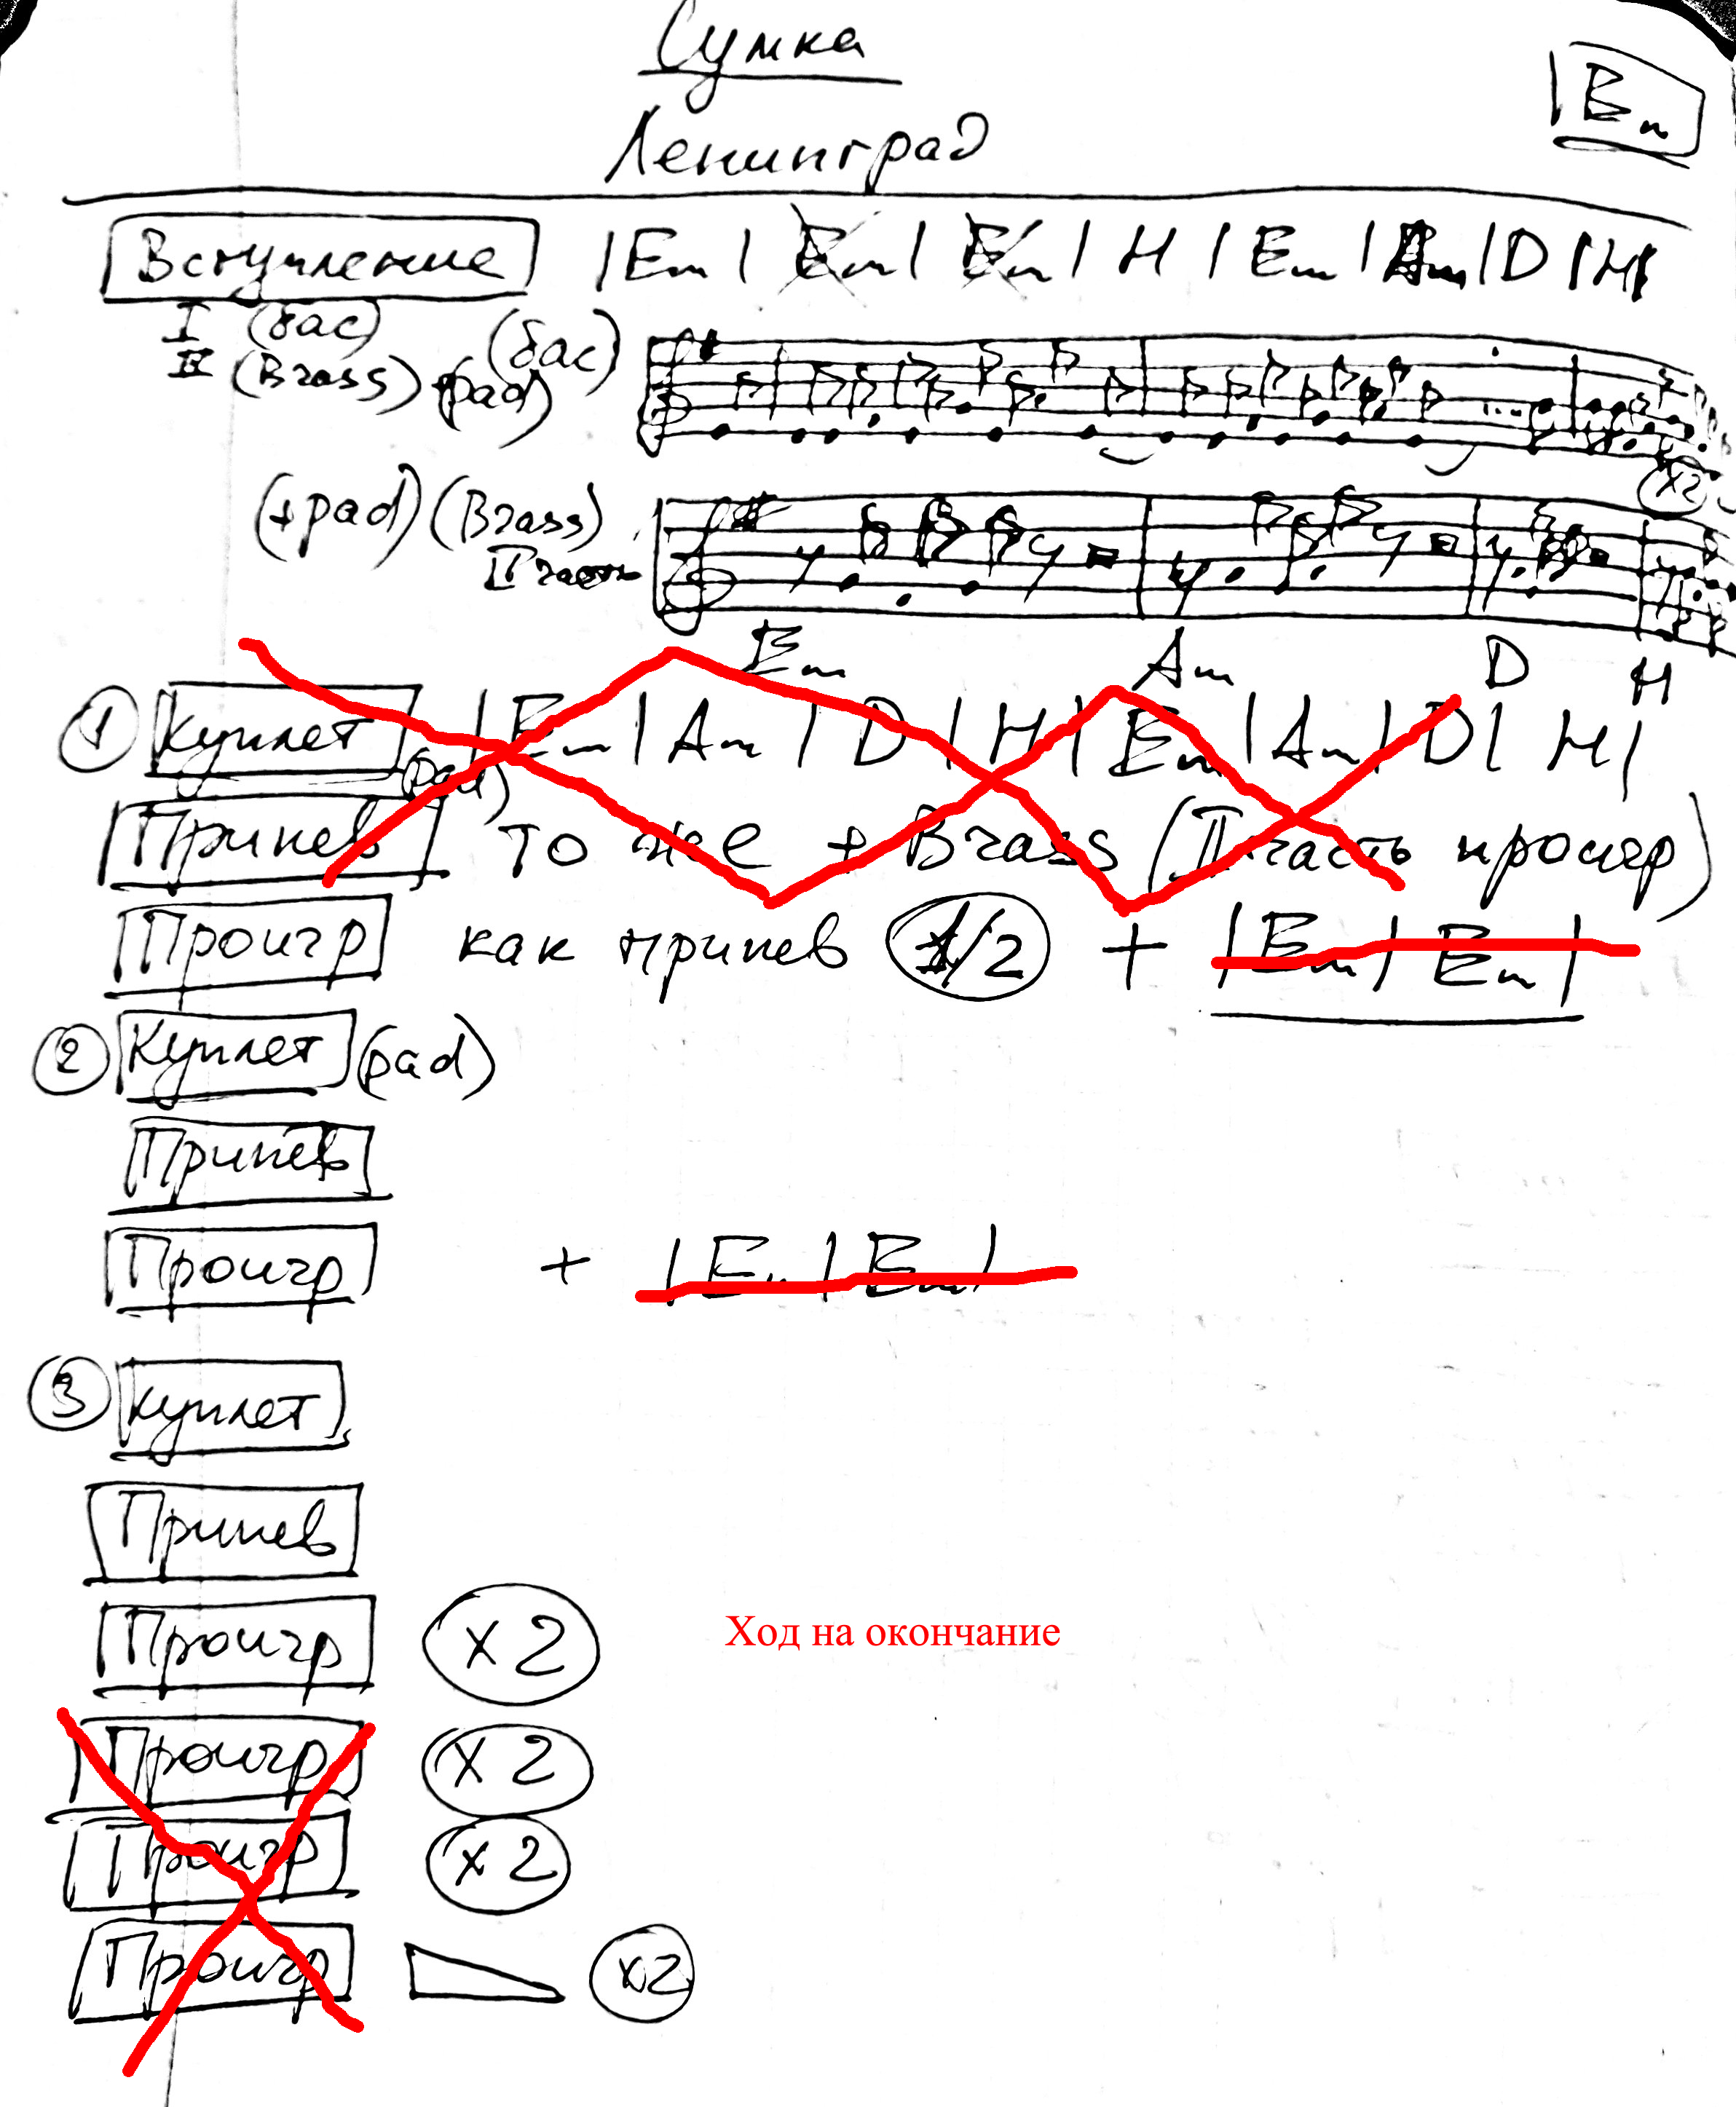 Сумка
Ленинград
Em
Вступление | Em | Em | Em | H | Em | Am | D | H |
I (бас) (бас)
II (Brass) + (pad)
x2
(+pad) (Brass)
II часть
Em Am D H
1 Куплет (pad) | Em | Am | D | H | Em | Am | D | H |
Припев то же + Brass (II часть проигр)
Проигр как припев 1/2 + | Em | Em |
2 Куплет (pad)
Припев
Проигр + | Em | Em |
3 Куплет
Припев
Проигр x2 Ход на окончание
Проигр x2
Проигр x2
Проигр x2